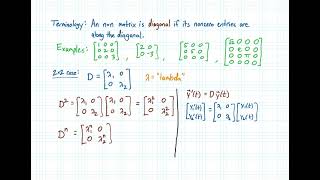 Terminology: An n×n matrix is diagonal if its nonzero entries are
along the diagonal.
Examples: [1 0 0; 0 2 0; 0 0 -3], [2 0; 0 -3],
2×2 case: D = [λ₁ 0; 0 λ₂] λ = "lambda"
D² = [λ₁ 0; 0 λ₂][λ₁ 0; 0 λ₂] = [λ₁² 0; 0 λ₂²]
Dⁿ = [λ₁ⁿ 0; 0 λ₂ⁿ]
y⃗'(t) = D y⃗(t)
[y₁'(t); y₂'(t)] = [λ₁ 0; 0 λ₂][y₁(t); y₂(t)]